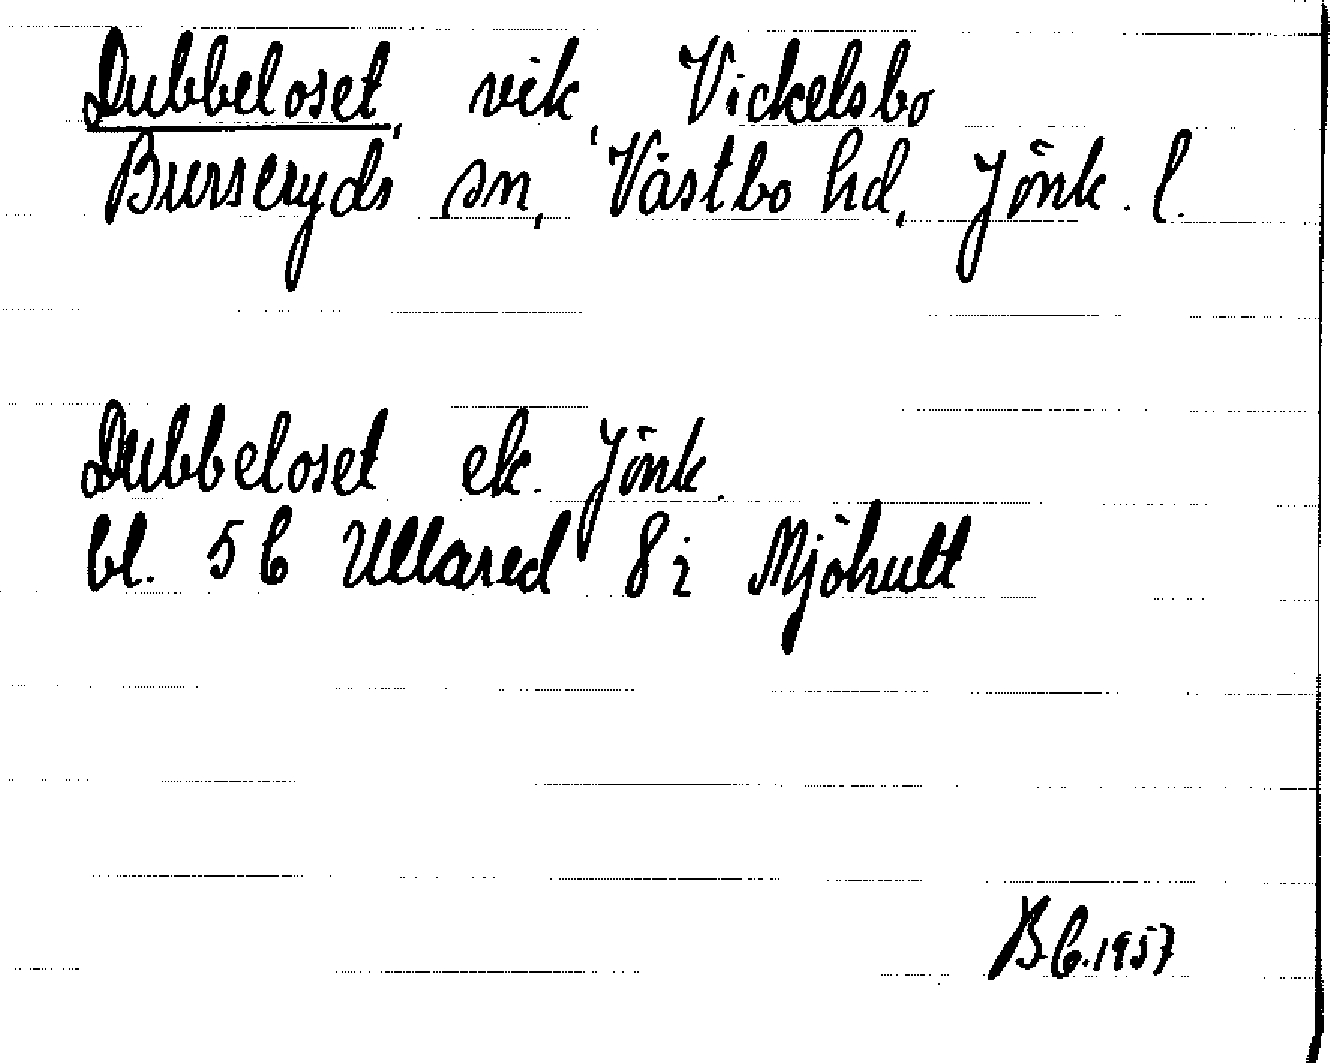 Dubbeloset, vik, Vickelsbo
Burseryds sn, Västbo hd, Jönk. l.
Dubbeloset ek. Jönk.
bl. 5 C Ullared 8 i Mjöhult
B.C. 1957